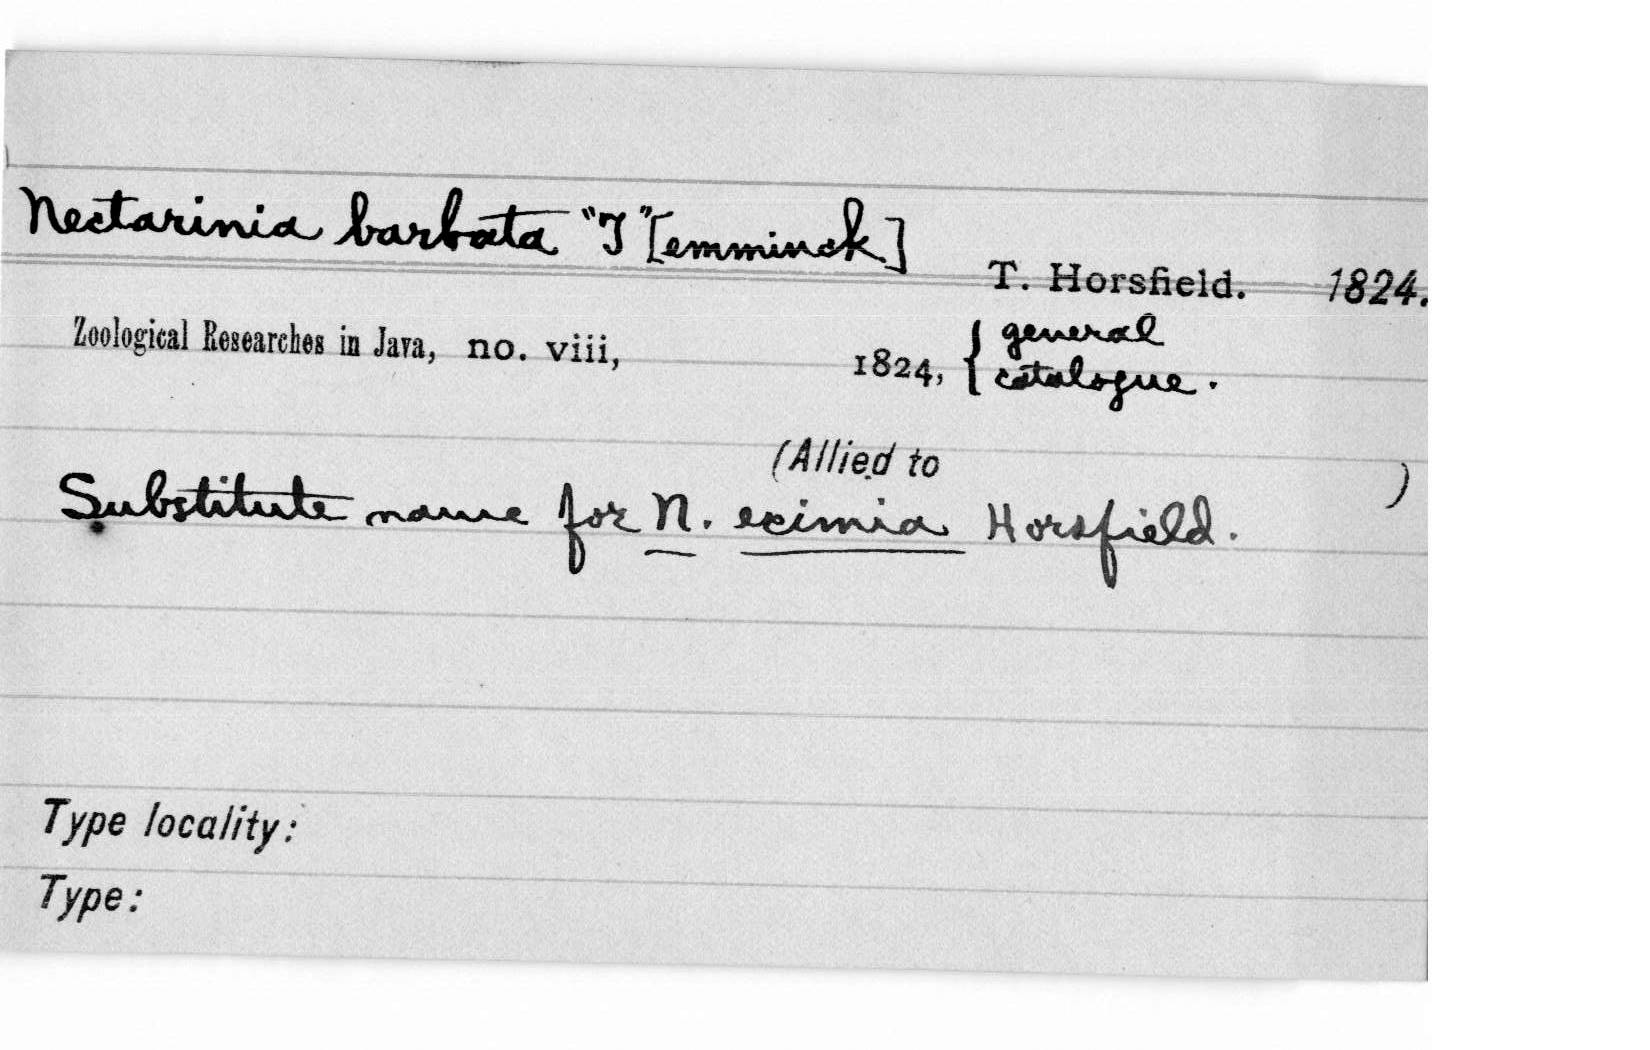 Nectarinia barbata "T"[emminck]
T. Horsfield. 1824.
Zoological Researches in Java, no. viii, 1824, { general
catalogue.
(Allied to )
Substitute name for N. eximia Horsfield.
Type locality:
Type: